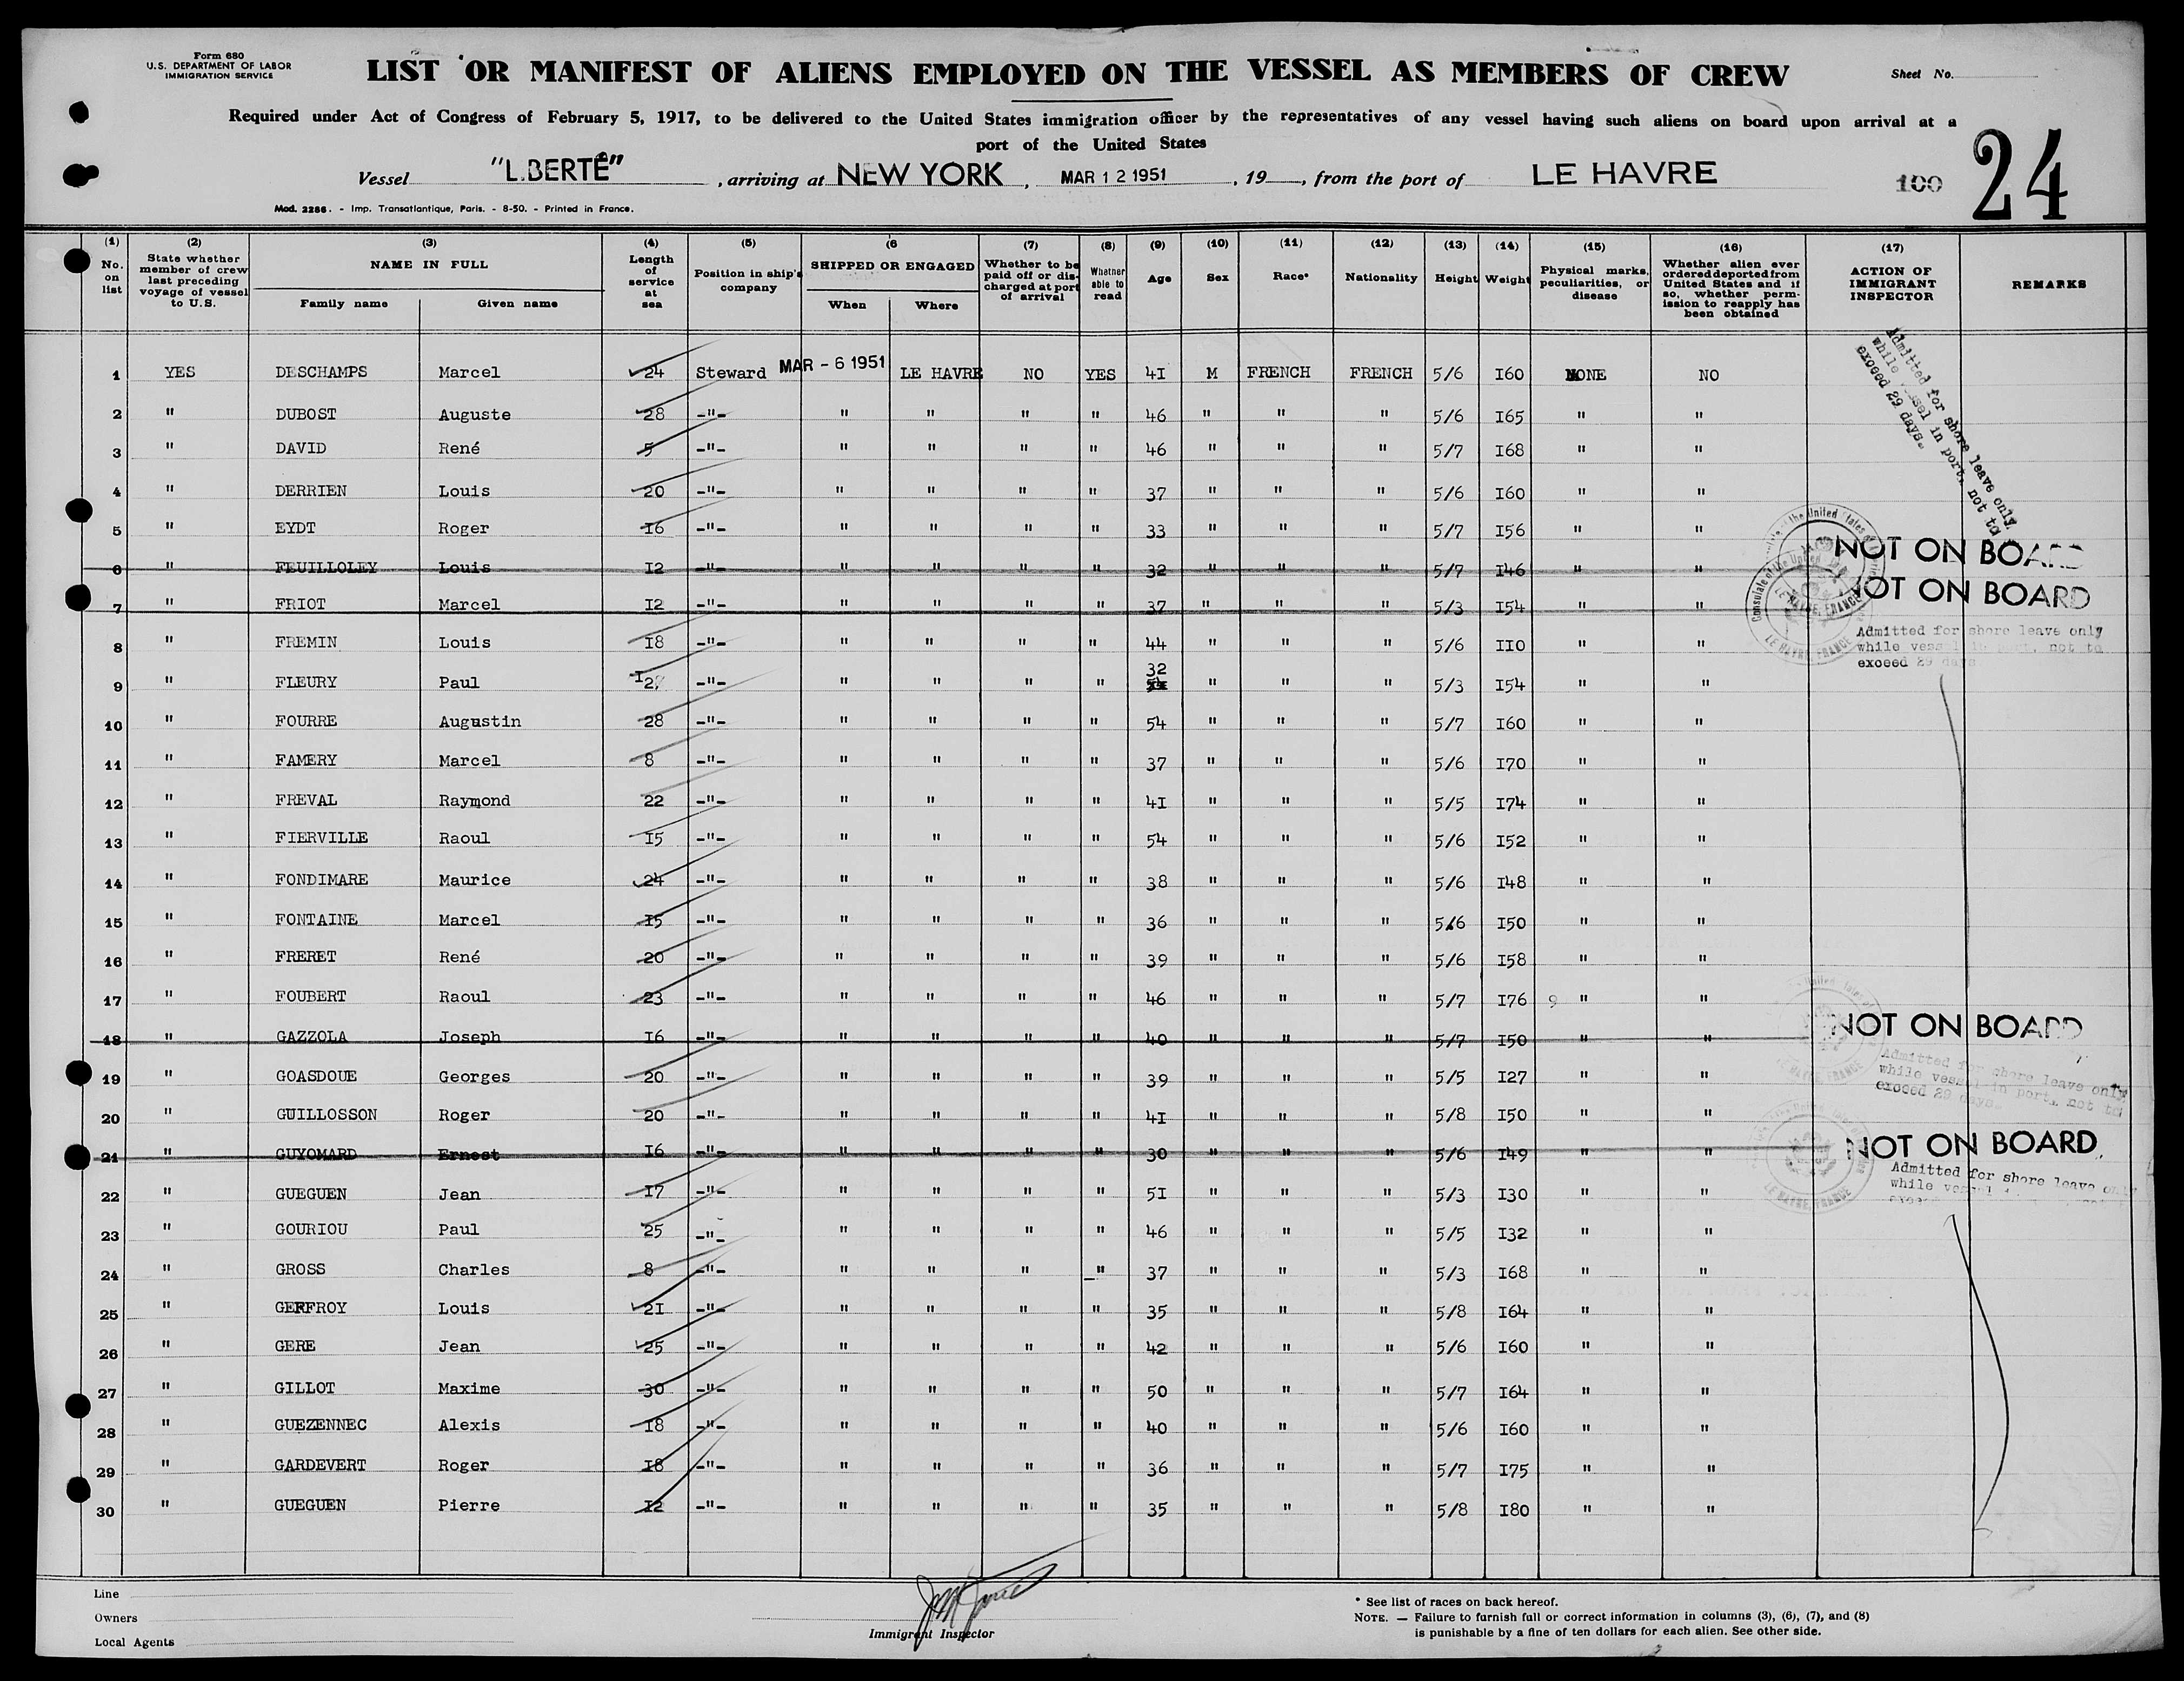 Form 680
U.S. DEPARTMENT OF LABOR
IMMIGRATION SERVICE
LIST OR MANIFEST OF ALIENS EMPLOYED ON THE VESSEL AS MEMBERS OF CREW
Sheet No.
Required under Act of Congress of February 5, 1917, to be delivered to the United States immigration officer by the representatives of any vessel having such aliens on board upon arrival at a
port of the United States
Vessel "L.BERTÉ", arriving at NEW YORK, MAR 12 1951, 19__, from the port of LE HAVRE 100 24
Mod. 2286. - Imp. Transatlantique, Paris. - 8-50. - Printed in France.
(1) No. on list
(2) State whether member of crew last preceding voyage of vessel to U.S.
(3) NAME IN FULL Family name Given name
(4) Length of service at sea
(5) Position in ship's company
(6 SHIPPED OR ENGAGED When Where
(7) Whether to be paid off or discharged at port of arrival
(8) Whether able to read
(9) Age
(10) Sex
(11) Race*
(12) Nationality
(13) Height
(14) Weight
(15) Physical marks, peculiarities, or disease
(16) Whether alien ever ordered deported from United States and if so, whether permission to reapply has been obtained
(17) ACTION OF IMMIGRANT INSPECTOR
REMARKS
1 YES DESCHAMPS Marcel 24 Steward MAR - 6 1951 LE HAVRE NO YES 4I M FRENCH FRENCH 5/6 I60 NONE NO
Admitted for shore leave only
while vessel in port, not to
exceed 29 days.
2 " DUBOST Auguste 28 -"- " " " " 46 " " " 5/6 I65 " "
3 " DAVID René 5 -"- " " " " 46 " " " 5/7 I68 " "
4 " DERRIEN Louis 20 -"- " " " " 37 " " " 5/6 I60 " "
5 " EYDT Roger I6 -"- " " " " 33 " " " 5/7 I56 " "
6 " FEUILLOLEY Louis I2 -"- " " " " 32 " " " 5/7 I46 " " NOT ON BOARD
7 " FRIOT Marcel I2 -"- " " " " 37 " " " 5/3 I54 " " NOT ON BOARD
Consulate of the United States
LE HAVRE, FRANCE
8 " FREMIN Louis I8 -"- " " " " 44 " " " 5/6 II0 " "
Admitted for shore leave only
while vessel in port, not to
exceed 29 days
9 " FLEURY Paul I2 -"- " " " " 32 " " " 5/3 I54 " "
10 " FOURRE Augustin 28 -"- " " " " 54 " " " 5/7 I60 " "
11 " FAMERY Marcel 8 -"- " " " " 37 " " " 5/6 I70 " "
12 " FREVAL Raymond 22 -"- " " " " 4I " " " 5/5 I74 " "
13 " FIERVILLE Raoul I5 -"- " " " " 54 " " " 5/6 I52 " "
14 " FONDIMARE Maurice 24 -"- " " " " 38 " " " 5/6 I48 " "
15 " FONTAINE Marcel I5 -"- " " " " 36 " " " 5/6 I50 " "
16 " FRERET René 20 -"- " " " " 39 " " " 5/6 I58 " "
17 " FOUBERT Raoul 23 -"- " " " " 46 " " " 5/7 I76 9 " "
18 " GAZZOLA Joseph I6 -"- " " " " 40 " " " 5/7 I50 " " NOT ON BOARD
19 " GOASDOUE Georges 20 -"- " " " " 39 " " " 5/5 I27 " "
Admitted for shore leave only
while vessel in port, not to
exceed 29 days.
20 " GUILLOSSON Roger 20 -"- " " " " 4I " " " 5/8 I50 " "
21 " GUYOMARD Ernest I6 -"- " " " " 30 " " " 5/6 I49 " " NOT ON BOARD
LE HAVRE, FRANCE
22 " GUEGUEN Jean I7 -"- " " " " 5I " " " 5/3 I30 " "
Admitted for shore leave only
while vessel
23 " GOURIOU Paul 25 -"- " " " " 46 " " " 5/5 I32 " "
24 " GROSS Charles 8 -"- " " " _" 37 " " " 5/3 I68 " "
25 " GEFFROY Louis 2I -"- " " " " 35 " " " 5/8 I64 " "
26 " GERE Jean 25 -"- " " " " 42 " " " 5/6 I60 " "
27 " GILLOT Maxime 30 -"- " " " " 50 " " " 5/7 I64 " "
28 " GUEZENNEC Alexis I8 -"- " " " " 40 " " " 5/6 I60 " "
29 " GARDEVERT Roger I8 -"- " " " " 36 " " " 5/7 I75 " "
30 " GUEGUEN Pierre I2 -"- " " " " 35 " " " 5/8 I80 " "
Line
Owners
Local Agents
Immigrant Inspector
* See list of races on back hereof.
NOTE. — Failure to furnish full or correct information in columns (3), (6), (7), and (8)
is punishable by a fine of ten dollars for each alien. See other side.